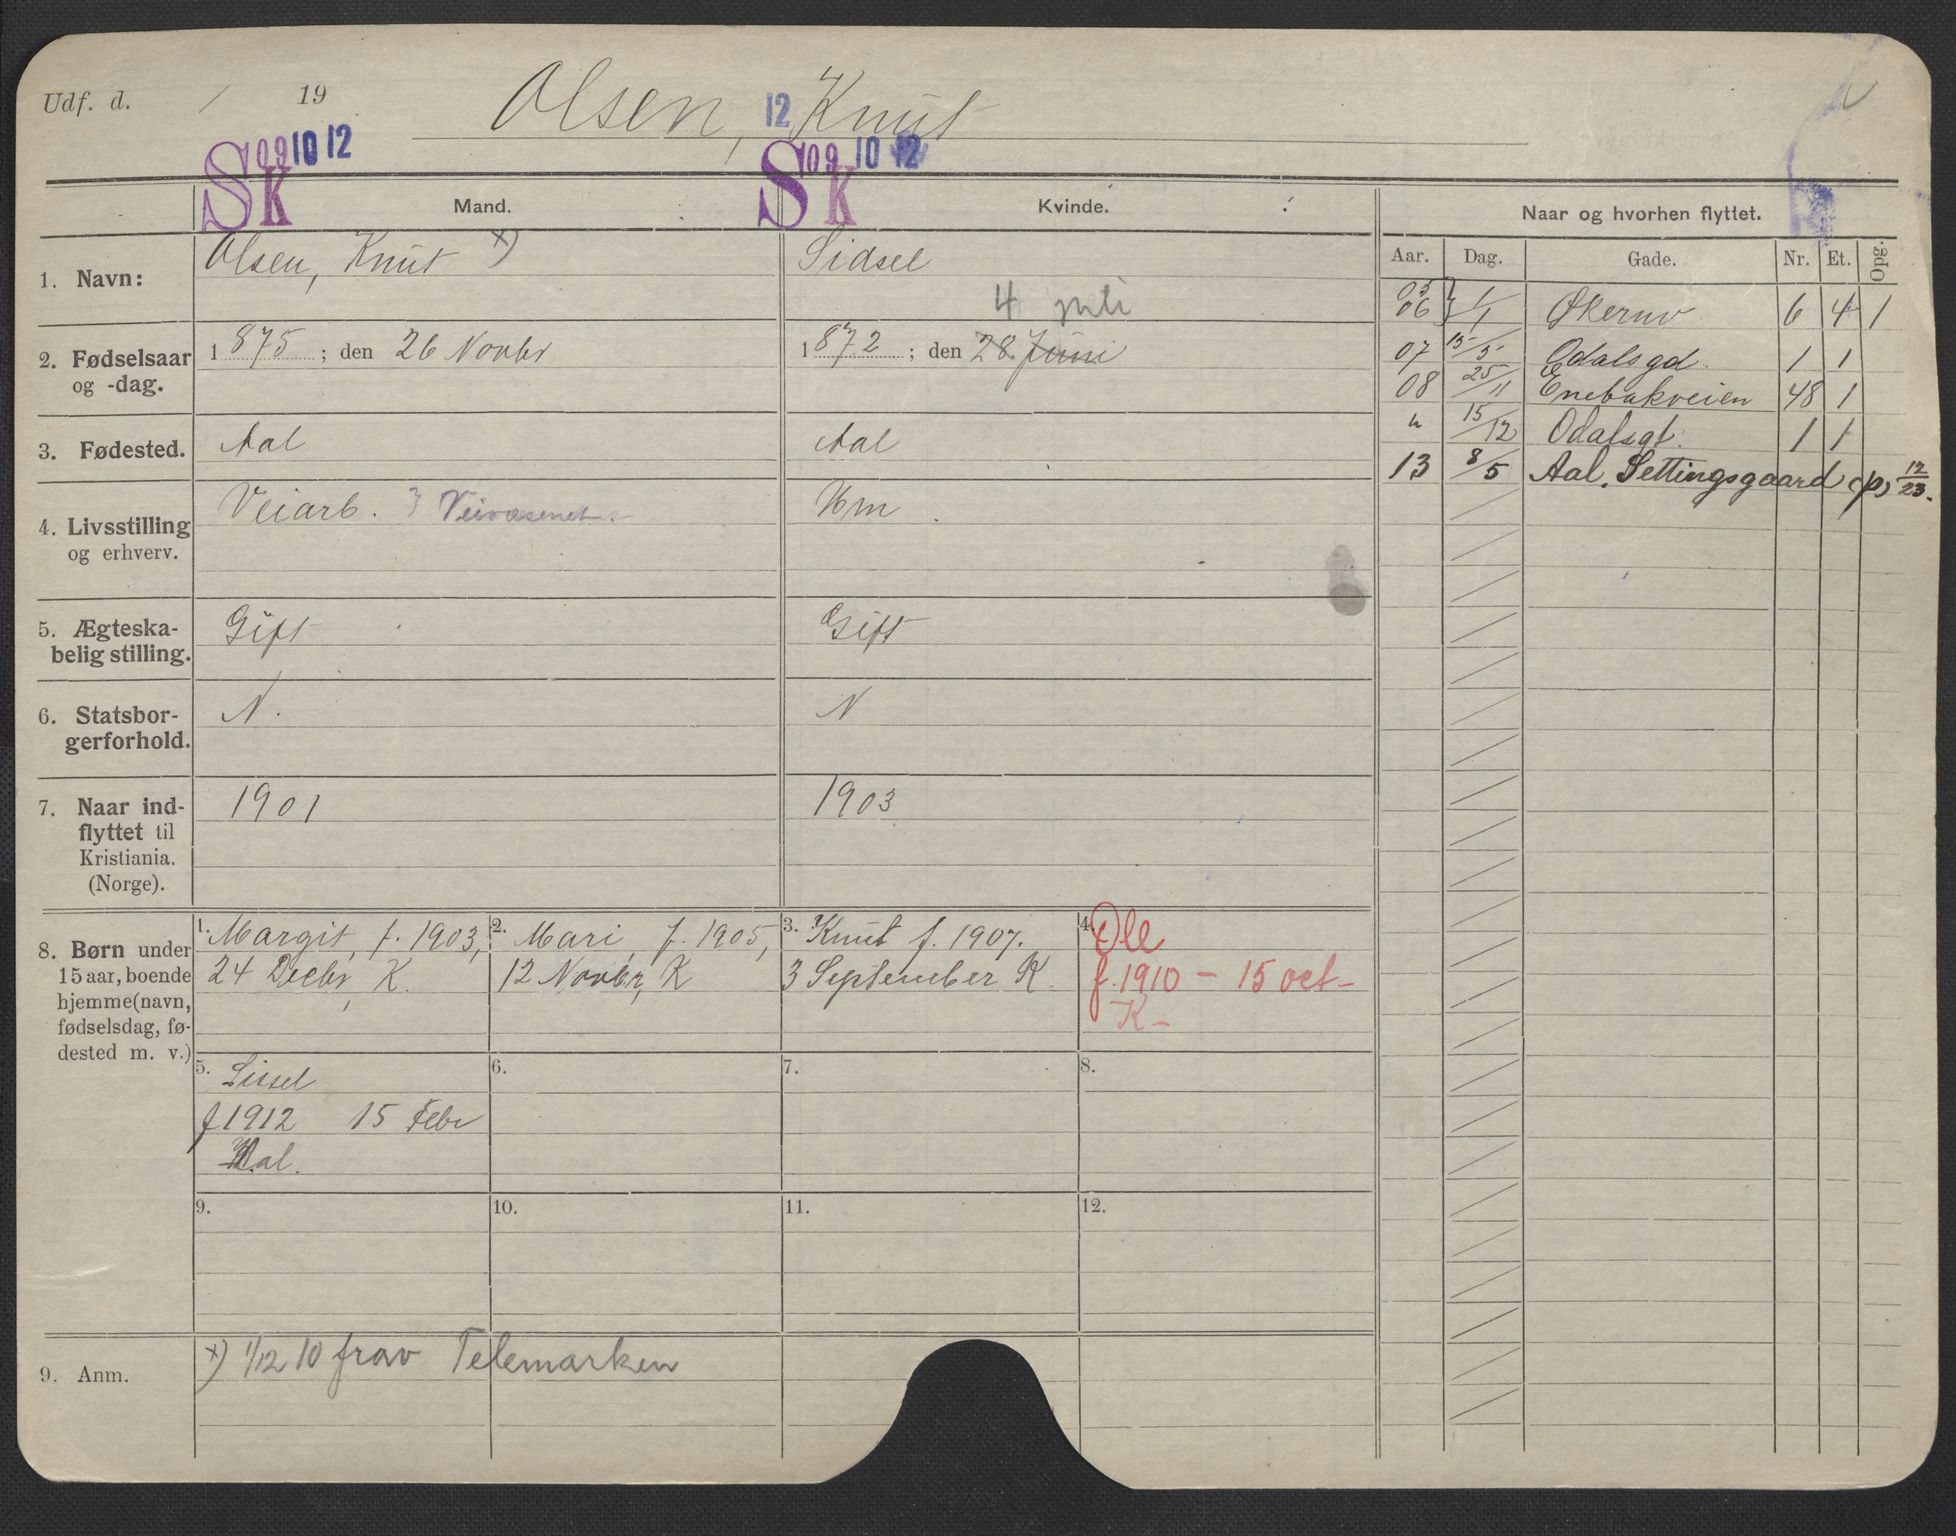 Udf. d. / 19
Olsen, Knut
12
S K 09 10 12
S K 09 10 12
Mand.
Kvinde.
Naar og hvorhen flyttet.
Aar. Dag. Gade. Nr. Et. Opg.
1. Navn:
Olsen, Knut x)
Sidsel
2. Fødselsaar
og -dag.
1875; den 26 Novbr
4 juli
1872; den 28 Juni
3. Fødested.
Aal
Aal
4. Livsstilling
og erhverv.
Veiarb. Veivæsenet
Hm
5. Ægteska-
belig stilling.
Gift
Gift
6. Statsbor-
gerforhold.
N.
N
7. Naar ind-
flyttet til
Kristiania.
(Norge).
1901
1903
8. Børn under
15 aar, boende
hjemme (navn,
fødselsdag, fø-
dested m. v.)
1. Margit, f. 1903,
24 Decbr, K.
2. Mari, f. 1905,
12 Novbr, K
3. Knut f. 1907.
3 September K.
4. Ole
f. 1910 – 15 oct –
K –
5. Sissel
f 1912 15 Febr
Aal.
6.
7.
8.
9.
10.
11.
12.
9. Anm.
x) 1/12 10 frav Telemarken
05
06 } 1/1 Økernv 6 4 1
07 15/5 Odalsgd. 1 1
08 25/11 Enebakveien 48 1
" 15/12 Odalsgt. 1 1
13 8/5 Aal. Settingsgaard (p) 12/23.